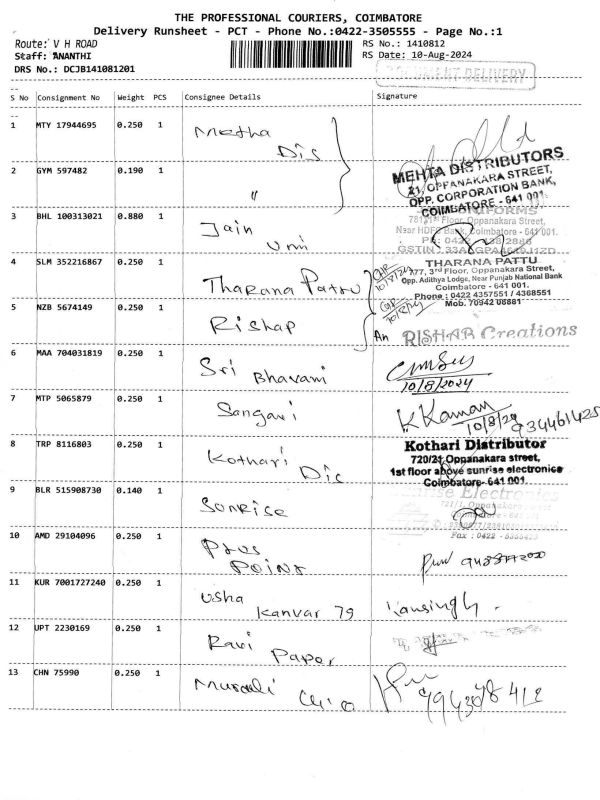 THE PROFESSIONAL COURIERS, COIMBATORE
Delivery Runsheet - PCT - Phone No.:0422-3505555 - Page No.:1
Route: V H ROAD
RS No.: 1410812
Staff: ANANTHI
RS Date: 10-Aug-2024
DRS No.: DCJB141081201
DOCUMENT DELIVERY
S No Consignment No Weight PCS Consignee Details Signature
1 MTY 17944695 0.250 1 Metha
Dis
MEHTA DISTRIBUTORS
21, OPPANAKARA STREET,
OPP. CORPORATION BANK,
COIMBATORE - 641 001.
2 GYM 597482 0.190 1 "
3 BHL 100313021 0.880 1 Jain
Uni
UNIFORMS
Floor, Oppanakara Street,
Near HDFC Bank, Coimbatore - 641 001.
4 SLM 352216867 0.250 1 Tharana Pattu
THARANA PATTU
777, 3rd Floor, Oppanakara Street,
Opp. Adithya Lodge, Near Punjab National Bank
Coimbatore - 641 001.
Phone : 0422 4357551 / 4368551
10/8/24
5 NZB 5674149 0.250 1 Rishap
RISHAB Creations
6 MAA 704031819 0.250 1 Sri
Bhavani
10/8/2024
7 MTP 5065879 0.250 1 Sangavi
10/8/24
8 TRP 8116803 0.250 1 Kothari
Dis
Kothari Distributor
720/21, Oppanakara street,
1st floor above sunrise electronics
Coimbatore- 641 001.
9 BLR 515908730 0.140 1 Sunrise
Electronics
10 AMD 29104096 0.250 1 Plus
Point
11 KUR 7001727240 0.250 1 Usha
Kanvar 79
12 UPT 2230169 0.250 1 Ravi
Paper
13 CHN 75990 0.250 1 Murali